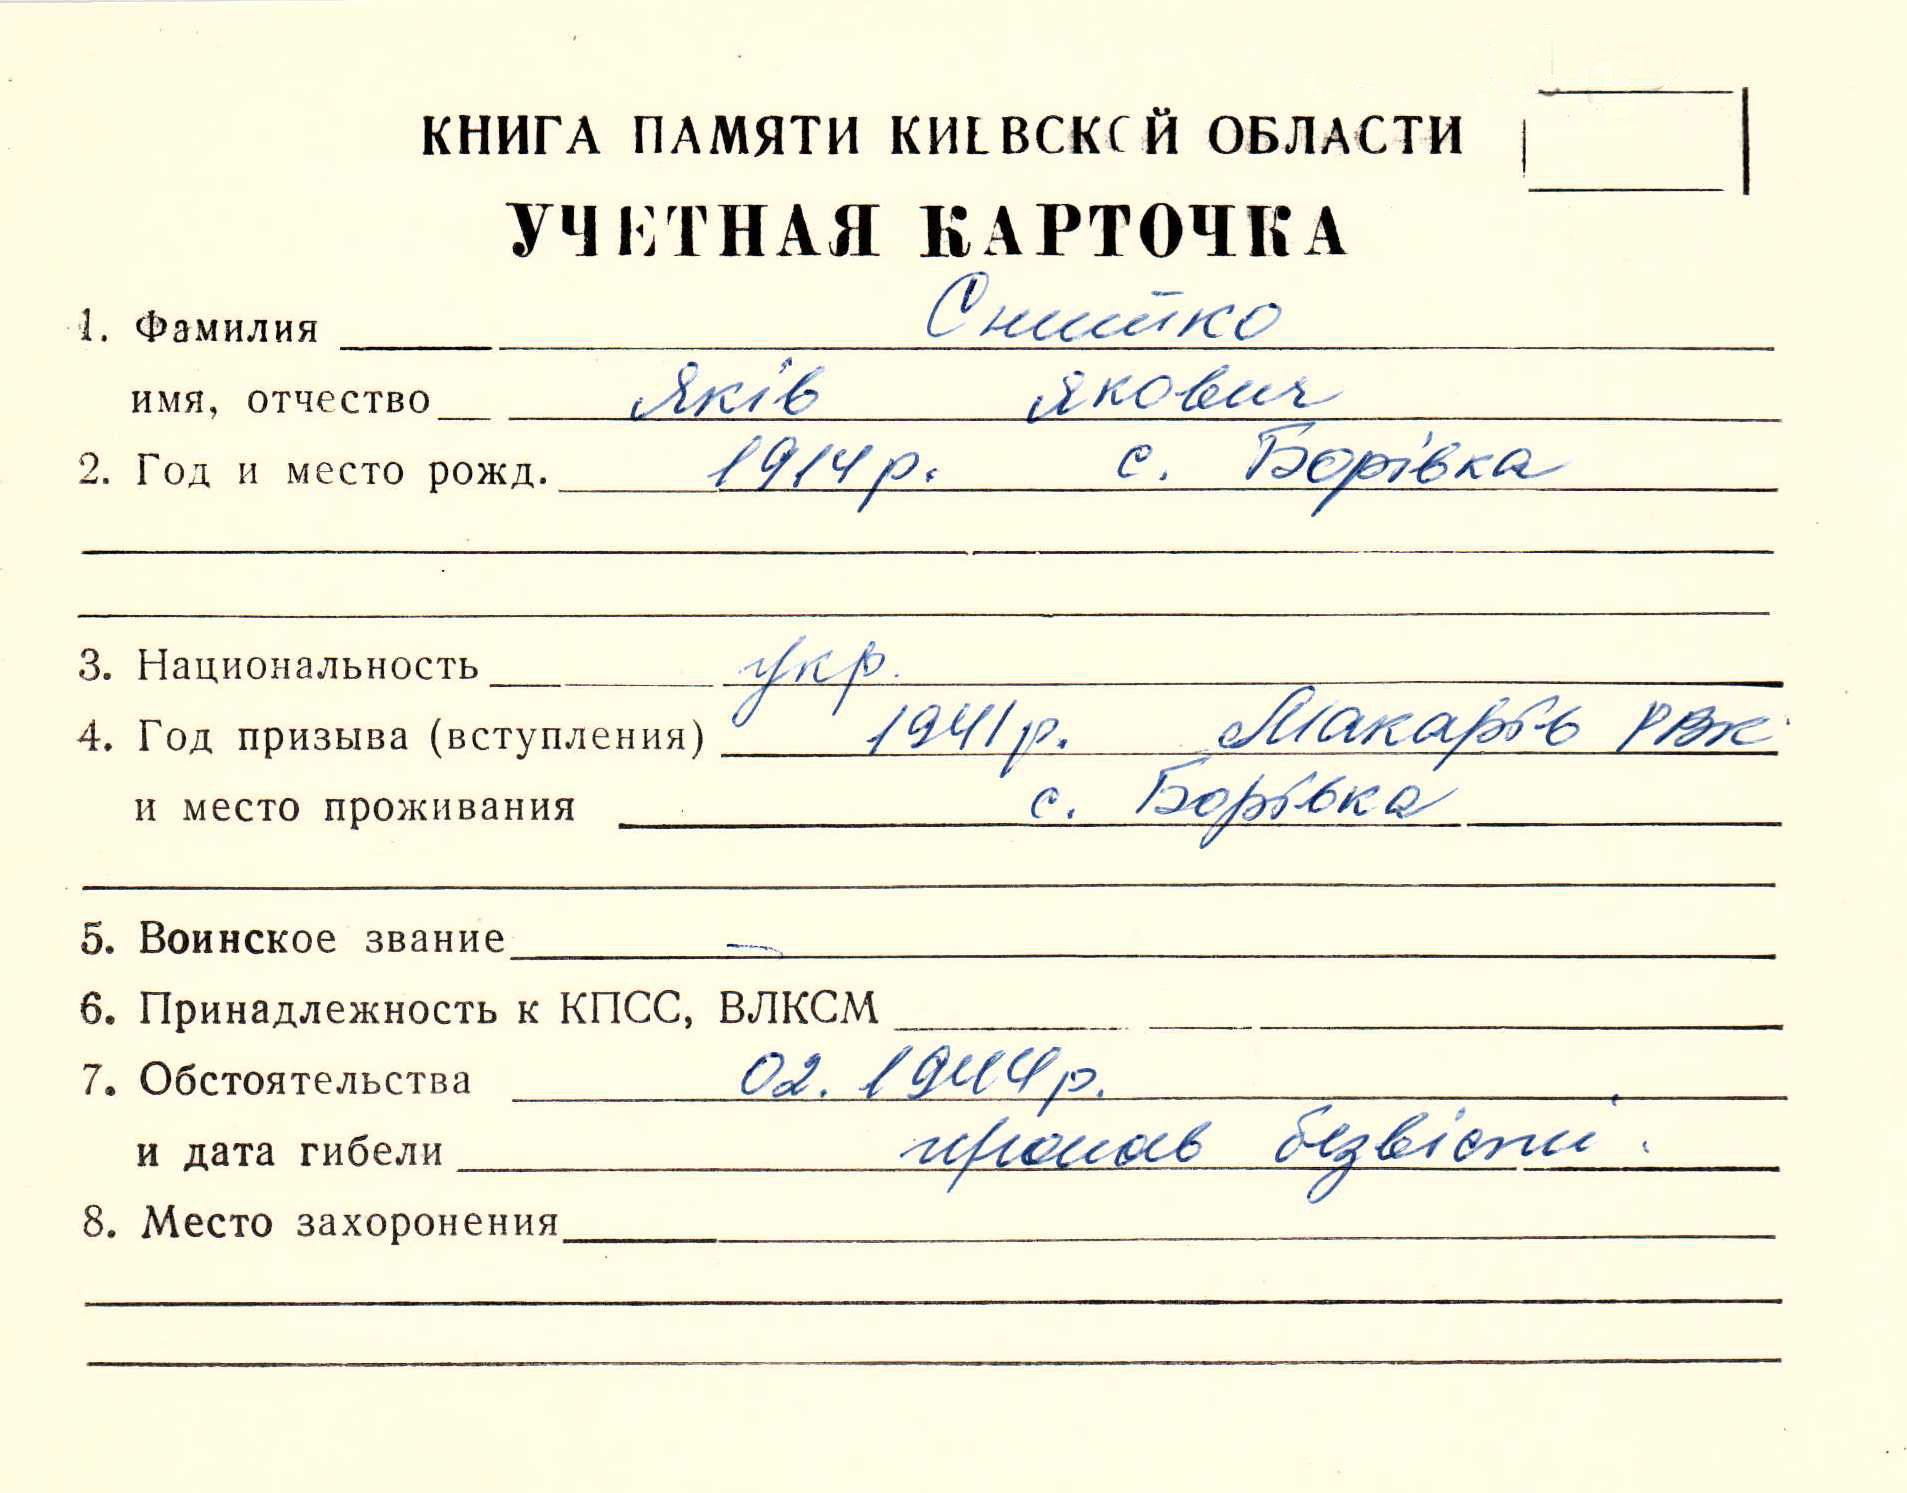 КНИГА ПАМЯТИ КИЕВСКОЙ ОБЛАСТИ
УЧЕТНАЯ КАРТОЧКА
1. Фамилия
имя, отчество Яків Якович
2. Год и место рожд. 1914 р. с. Борівка
3. Национальность укр.
4. Год призыва (вступления) 1941 р. Макарів РВК
и место проживания с. Борівка
5. Воинское звание —
6. Принадлежность к КПСС, ВЛКСМ
7. Обстоятельства 02. 1944 р.
и дата гибели пропав безвісти.
8. Место захоронения